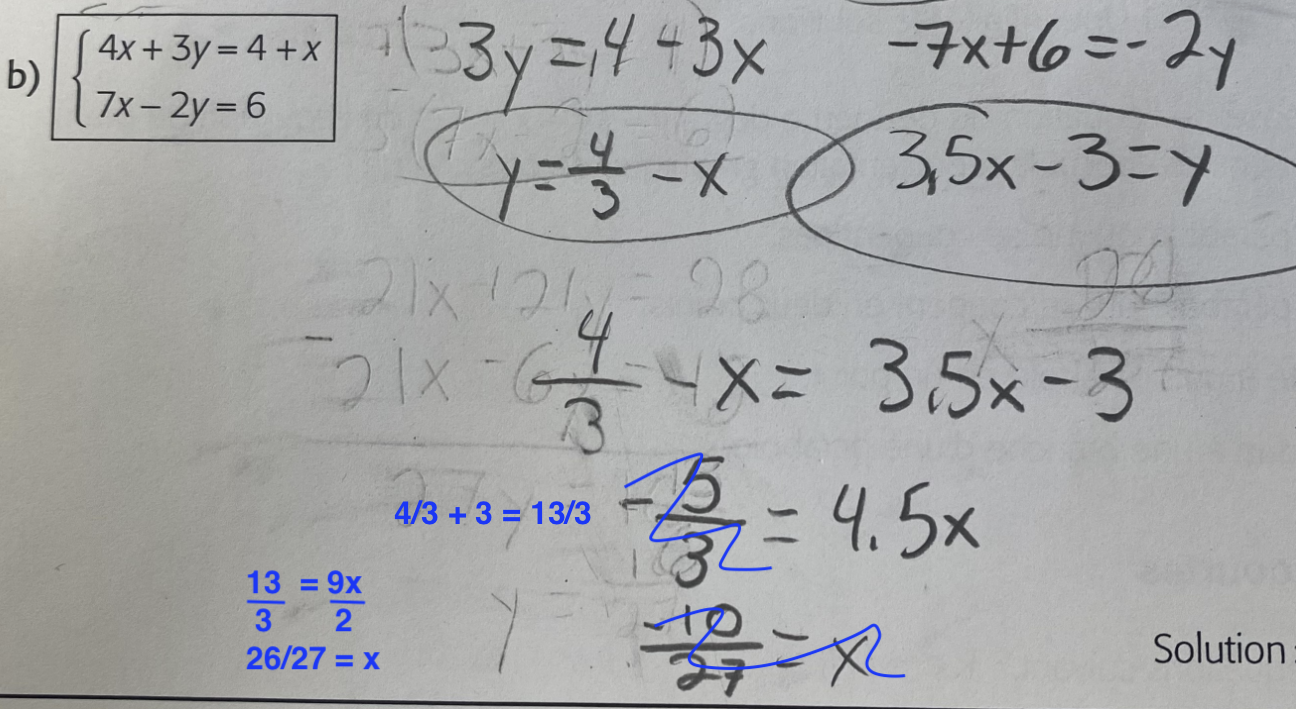 b) { 4x + 3y = 4 + x
7x − 2y = 6
3y = 4 + 3x
-7x+6 = -2y
y = 4/3 - x
3,5x - 3 = y
-21x + 21y = 28
21x - 6
4/3 - x = 3,5x - 3
4/3 + 3 = 13/3
-5/3 = 4.5x
13/3 = 9x/2
26/27 = x
-10/27 = x
y =
Solution :